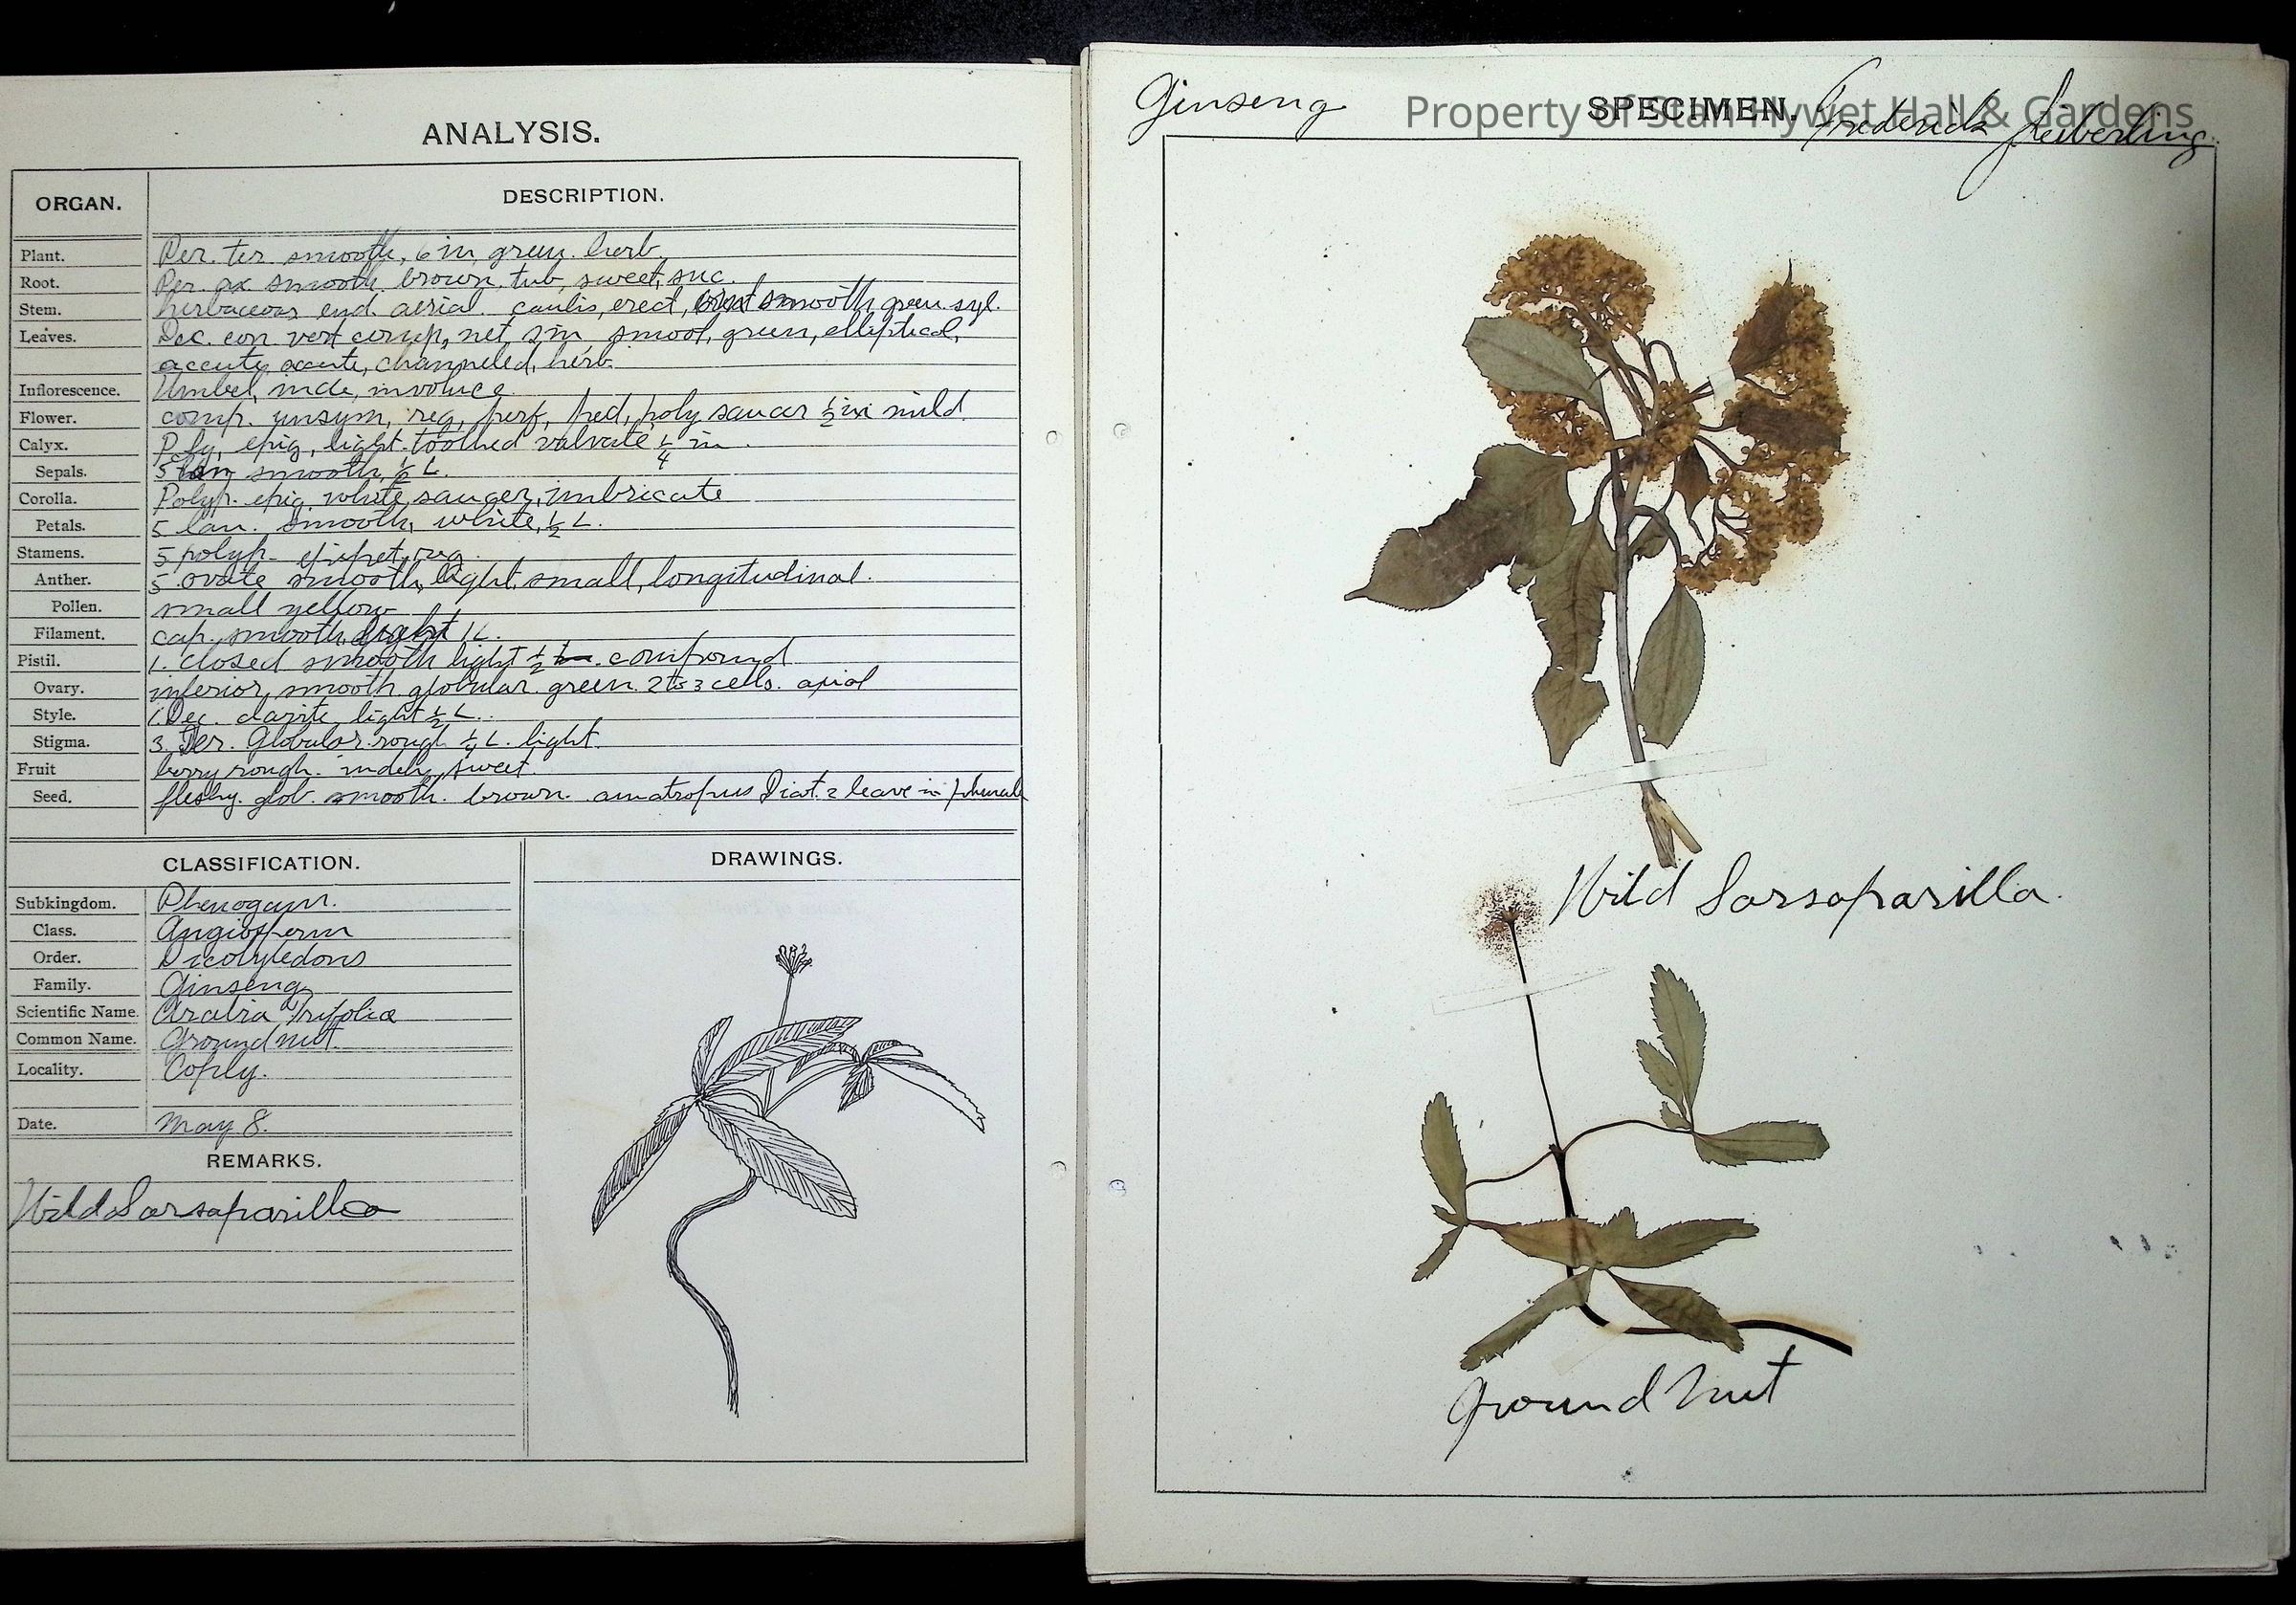 ANALYSIS.
ORGAN. DESCRIPTION.
Plant. Per. ter smooth, 6 in, green. herb.
Root. Per. ax smooth. brown, tub, sweet, suc.
Stem. herbaceous end. aerial. caulis, erect, smooth, green. syl.
Leaves. Dec. con vert comp, net, 2 in smoot, green, elliptical,
accute, acute, channeled, herb.
Inflorescence. Umbel, inde, involuce
Flower. comp. unsym, reg, perf, ped, poly saucer 1/2 in mild
Calyx. Poly, epig, light. toothed valvate 1/4 in.
Sepals. 5 lan smooth, L.
Corolla. Polyp. epig. white, saucer, imbricate
Petals. 5 lan. smooth, white, 1/2 L.
Stamens. 5 polyp. epipet, reg.
Anther. 5 ovate smooth, light, small, longitudinal.
Pollen. small yellow
Filament. cap. smooth, light 1 L.
Pistil. 1. closed smooth light 1/2 compound
Ovary. inferior, smooth. globular. green. 2 to 3 cells. axial
Style. 1. Dec. light 1/2 L.
Stigma. 3 Ter. Globular. rough 1/4 L. light.
Fruit berry rough. indeh, sweet.
Seed. fleshy. glob. smooth. brown. anatropus Dicot. 2 leave in
CLASSIFICATION.
Subkingdom. Phenogam.
Class. Angiosperm
Order. Dicotyledons
Family. Ginseng
Scientific Name. Aralia Trifolia
Common Name. Ground nut.
Locality. Copley.
Date. May 8.
REMARKS.
Wild Sarsaparilla
DRAWINGS.
Ginseng SPECIMEN. Frederick Seiberling.
Property of Stan Hywet Hall & Gardens
Wild Sarsaparilla.
Ground Nut